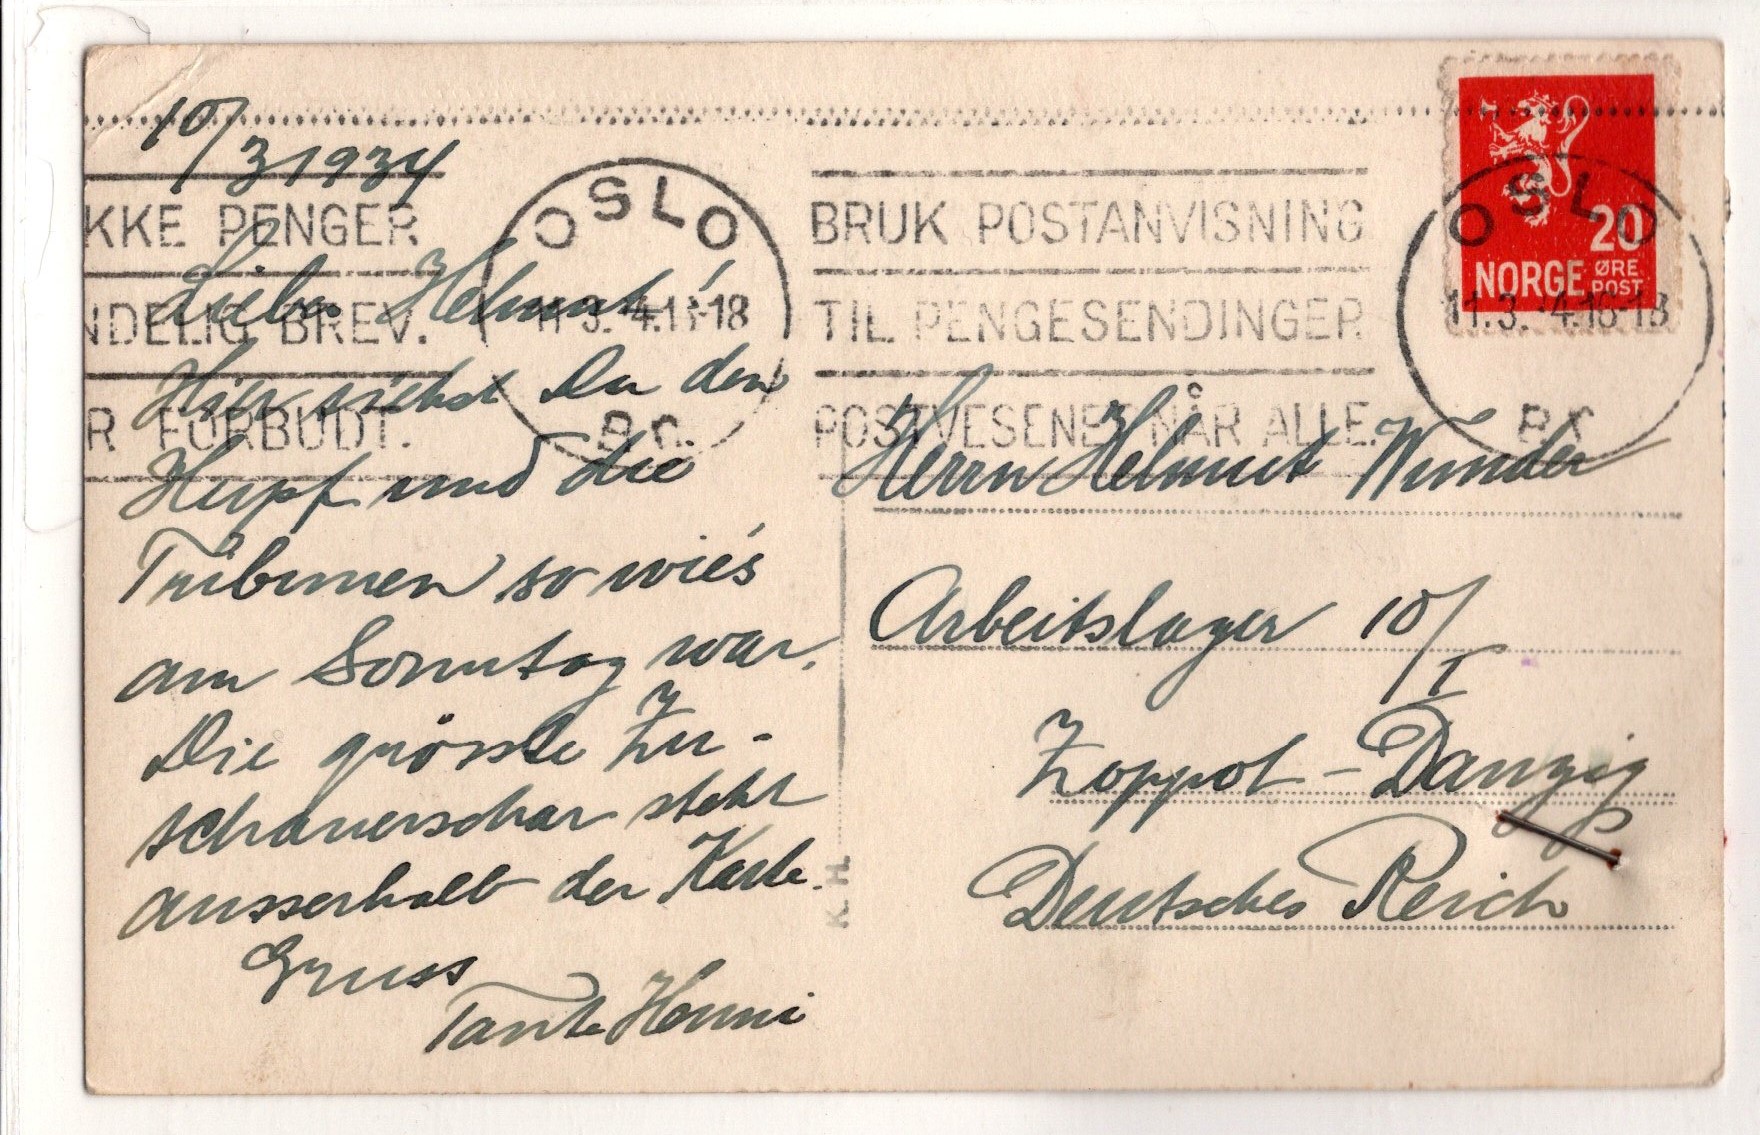 10/3 1934
KKE PENGER
NDELIG BREV.
R FORBUDT.
OSLO
11.3.34.16-18
Br.
BRUK POSTANVISNING
TIL PENGESENDINGER
POSTVESENET NÅR ALLE.
OSLO
11.3.34.16-18
Br
20
NORGE ØRE POST
Lieber Helmut!
Hier siehst Du den
Hupf und die
Tribünen so wie's
am Sonntag war.
Die grösste Zu-
schauerschar steht
ausserhalb der Karte.
Gruss
Tante Henni
K. H.
Herrn Helmut Wunder
Arbeitslager 10/I
Zoppot - Danzig
Deutsches Reich